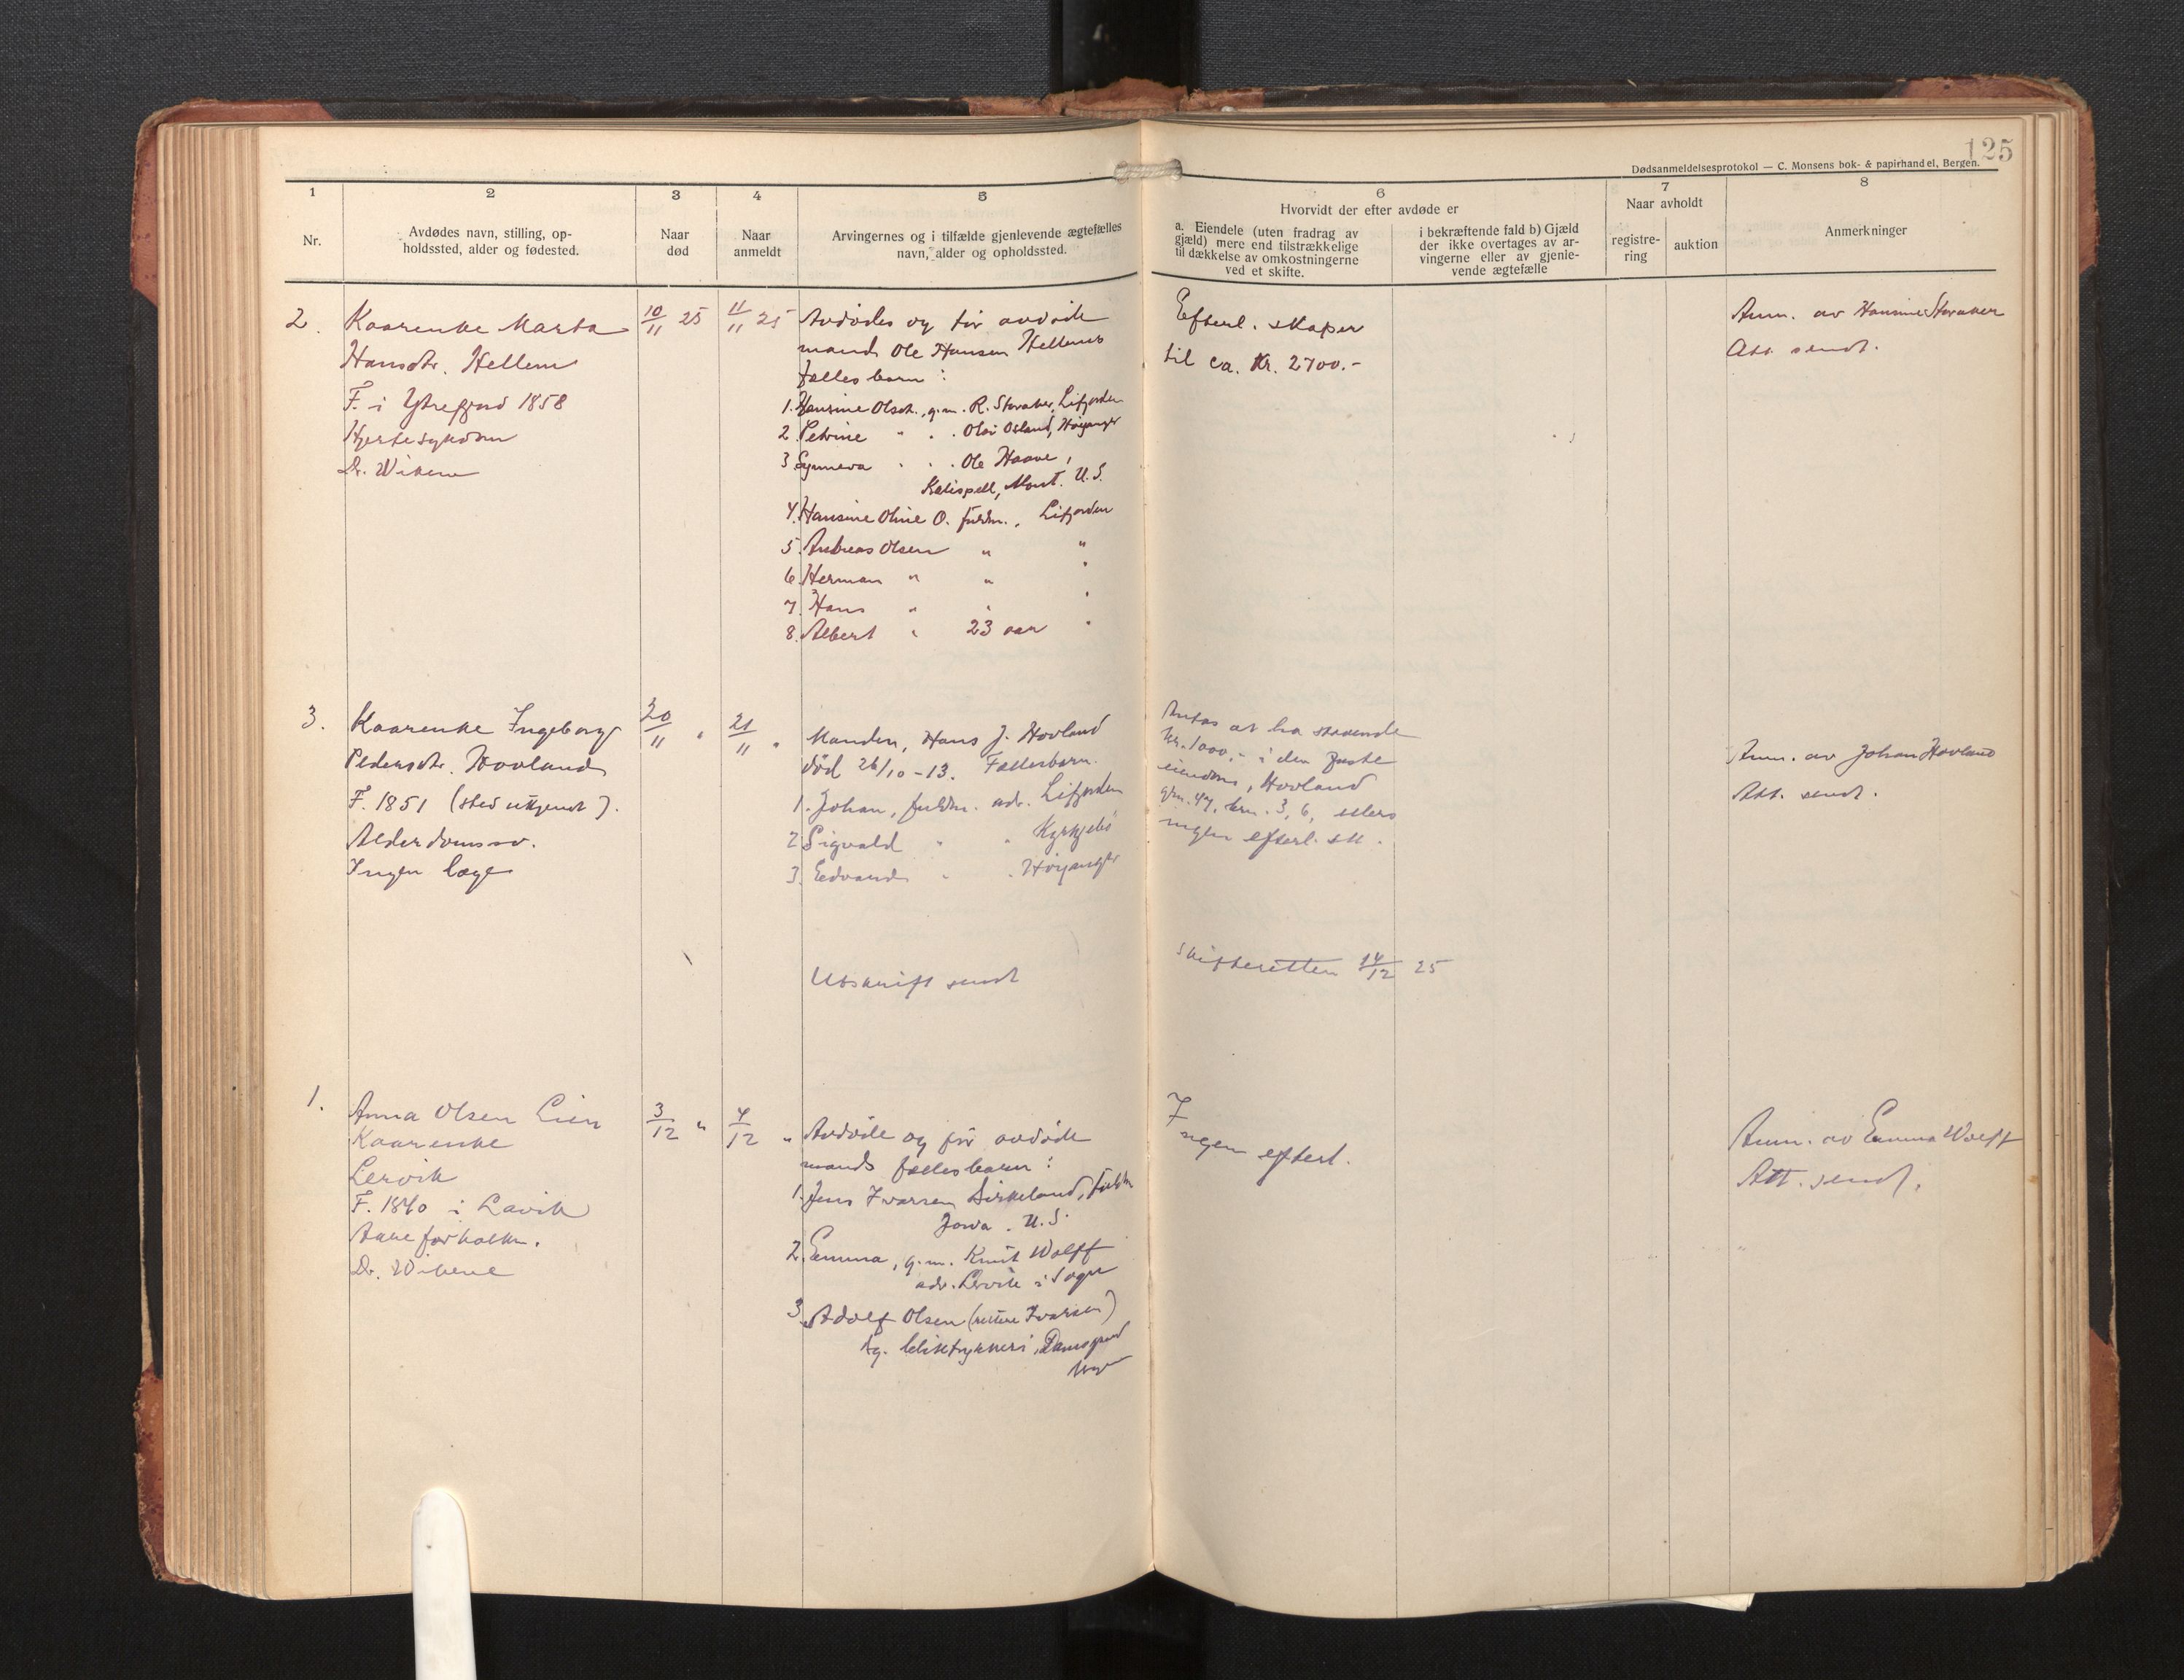 125
Dødsanmeldelsesprotokol — C. Monsens bok- & papirhandel, Bergen.
1
2
3
4
5
6
7
8
Nr.
Avdødes navn, stilling, op-
holdssted, alder og fødested.
Naar
død
Naar
anmeldt
Arvingernes og i tilfælde gjenlevende ægtefælles
navn, alder og opholdssted.
Hvorvidt der efter avdøde er
a. Eiendele (uten fradrag av
gjæld) mere end tilstrækkelige
til dækkelse av omkostningerne
ved et skifte.
i bekræftende fald b) Gjæld
der ikke overtages av ar-
vingerne eller av gjenle-
vende ægtefælle
Naar avholdt
registre-
ring
auktion
Anmerkninger
2.
Kaarenke Marta
Hansdtr. Hellem
F. i Ytrefjord 1858
Hjertesykdom
Dr. Wikene
10/11 25
11/11 25
Avdødes og før avdøde
mands Ole Hansen Hellems
fællesbarn:
1. Hansine Olsdt., g.m. R. Storaker, Lifjorden
2. Petrine " . . Olai Osland, Høyanger
3. Synneva . . . Ole Haave,
Kalispell, Mont. U.S.
4. Hansine Oline O. fuldm., Lifjorden
5. Andreas Olsen " "
6. Herman " " "
7. Hans " " "
8. Albert " 23 aar "
Efterl. skaper
til ca. Kr. 2700.-
Anm. av Hansine Storaker
Att. sendt.
3.
Kaarenke Ingeborg
Pedersdtr. Hovland
F. 1851 (sted ukjendt).
Alderdomssv.
Ingen læge
20/11 "
21/11 "
Manden, Hans J. Hovland
død 26/10-13. Fællesbarn.
1. Johan, fuldm. adr. Lifjorden
2. Sigvald " " Kyrkjebø
3. Edvard " " Høyanger
Antas at ha staaende
kr. 1000,- i den faste
eiendom, Hovland
grn. 47, brn. 3, 6, ellers
ingen efterl. sk.
Anm. av Johan Hovland
Att. sendt.
Utskrift sendt
skifteretten 14/12 25
1.
Anna Olsen Lien
Kaarenke
Lervik
F. 1840 i Lavik
Aareforkalkn.
Dr. Wikene
3/12 "
4/12 "
Avdøde og før avdøde
mands fællesbarn:
1. Jens Ivarsen Birkeland, fuldm
Jowa. U.S.
2. Emma, g.m. Knut Wolff
adr. Lervik i Sogn
3. Adolf Olsen (rettere Ivarsen)
Ingen efterl.
Anm. av Emma Wolff
Att. sendt.